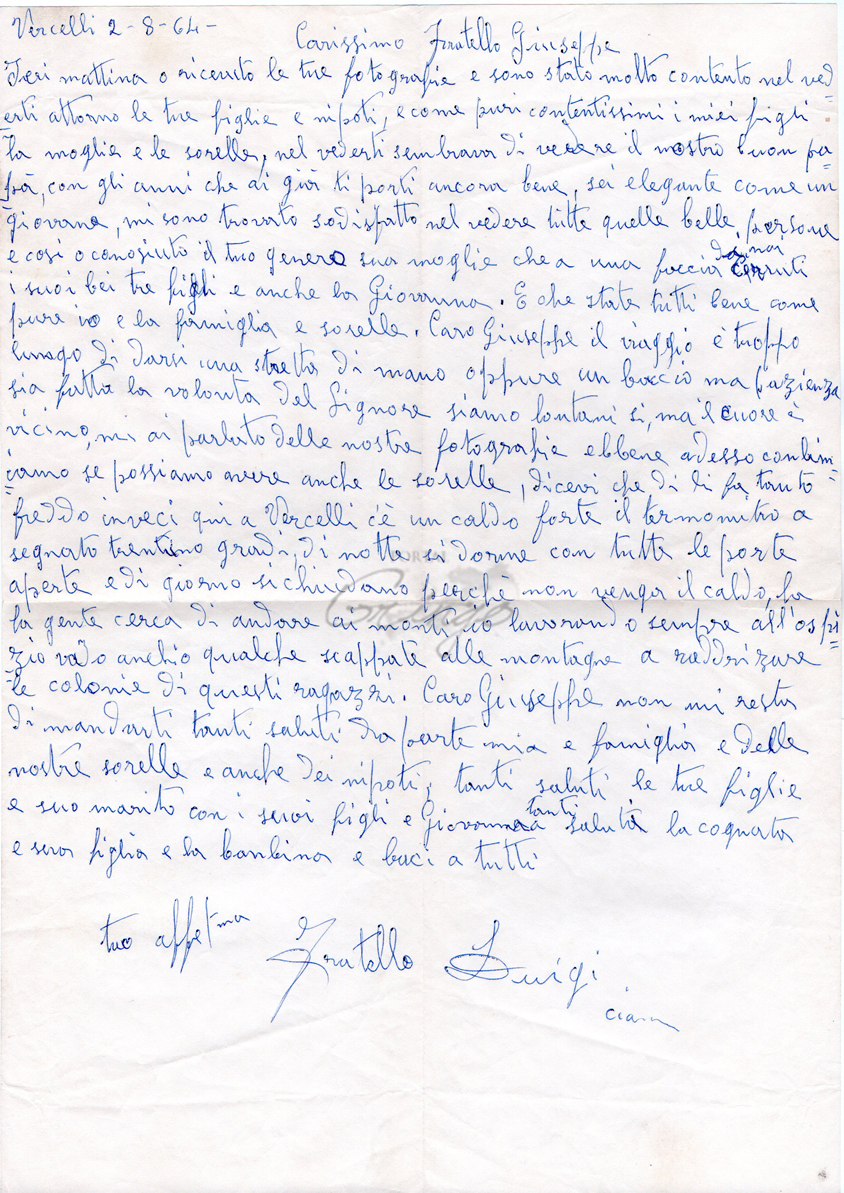 Vercelli 2-8-64-
Carissimo Fratello Giuseppe
Ieri mattina o ricevuto le tue fotografie e sono stato molto contento nel ved=
=erti attorno le tue figlie e nipoti, e come puri contentissimi i miei figli
la moglie e le sorelle, nel vederti sembrava di vedere il nostro buon pa=
=pà, con gli anni che ai già ti porti ancora bene, sei elegante come un
giovane, mi sono trovato sodisfatto nel vedere tutte quelle belle persone
e cosi o conosiuto il tuo genero sua moglie che a una faccia da noi Cerruti
i suoi bei tre figli e anche la Giovanna. E che state tutti bene come
pure io e la famiglia e sorelle. Caro Giuseppe il viaggio è troppo
lungo di darsi una stretta di mano oppure un baccio ma pazienza
sia fatta la volonta del Signore siamo lontani si, ma il cuore è
vicino, mi ai parlato delle nostre fotografie ebbene adesso conbin=
=iamo se possiamo avere anche le sorelle, dicevi che di li fa tanto
freddo inveci qui a Vercelli c'è un caldo forte il termometro a
segnato trentuno gradi, di notte si dorme con tutte le porte
aperte e di giorno si chiudano perchè non venga il caldo, la
la gente cerca di andare ai monti io lavorando sempre all'ospi=
=zio vado anchio qualche scappate alle montagne a raddrizare
le colonie di questi ragazzi. Caro Giuseppe non mi resta
di mandarti tanti saluti da parte mia e famiglia e delle
nostre sorelle e anche dei nipoti, tanti saluti le tue figlie
e suo marito con i suoi figli e Giovanna tanti saluti la cognata
e sua figlia e la banbina e baci a tutti
tuo affet.mo Fratello Luigi
ciau